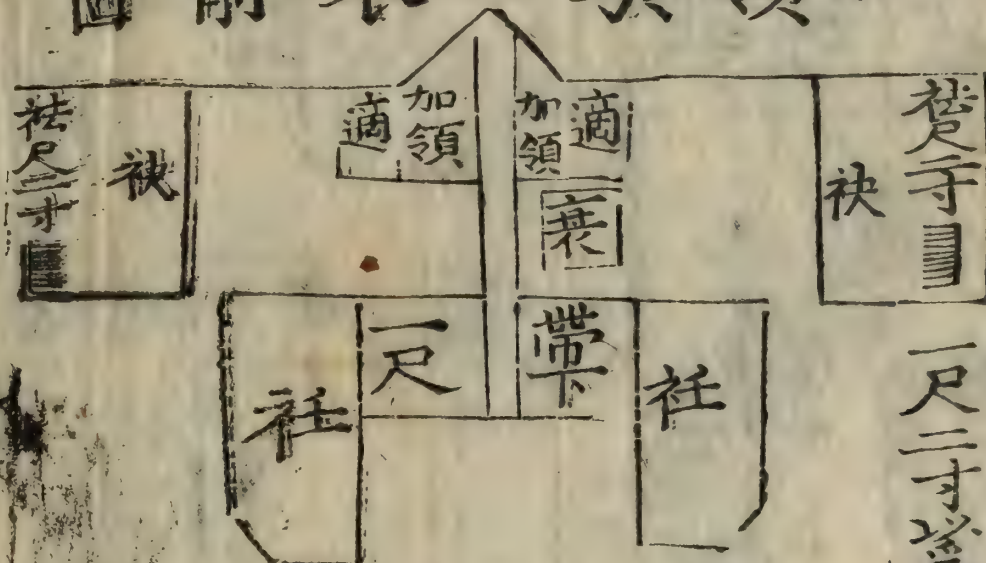 圖前衣
袪尺二寸
袂
適
加領
加領
適
衰
袂
袪尺二寸
衽
一尺
帶下
衽
一尺二寸